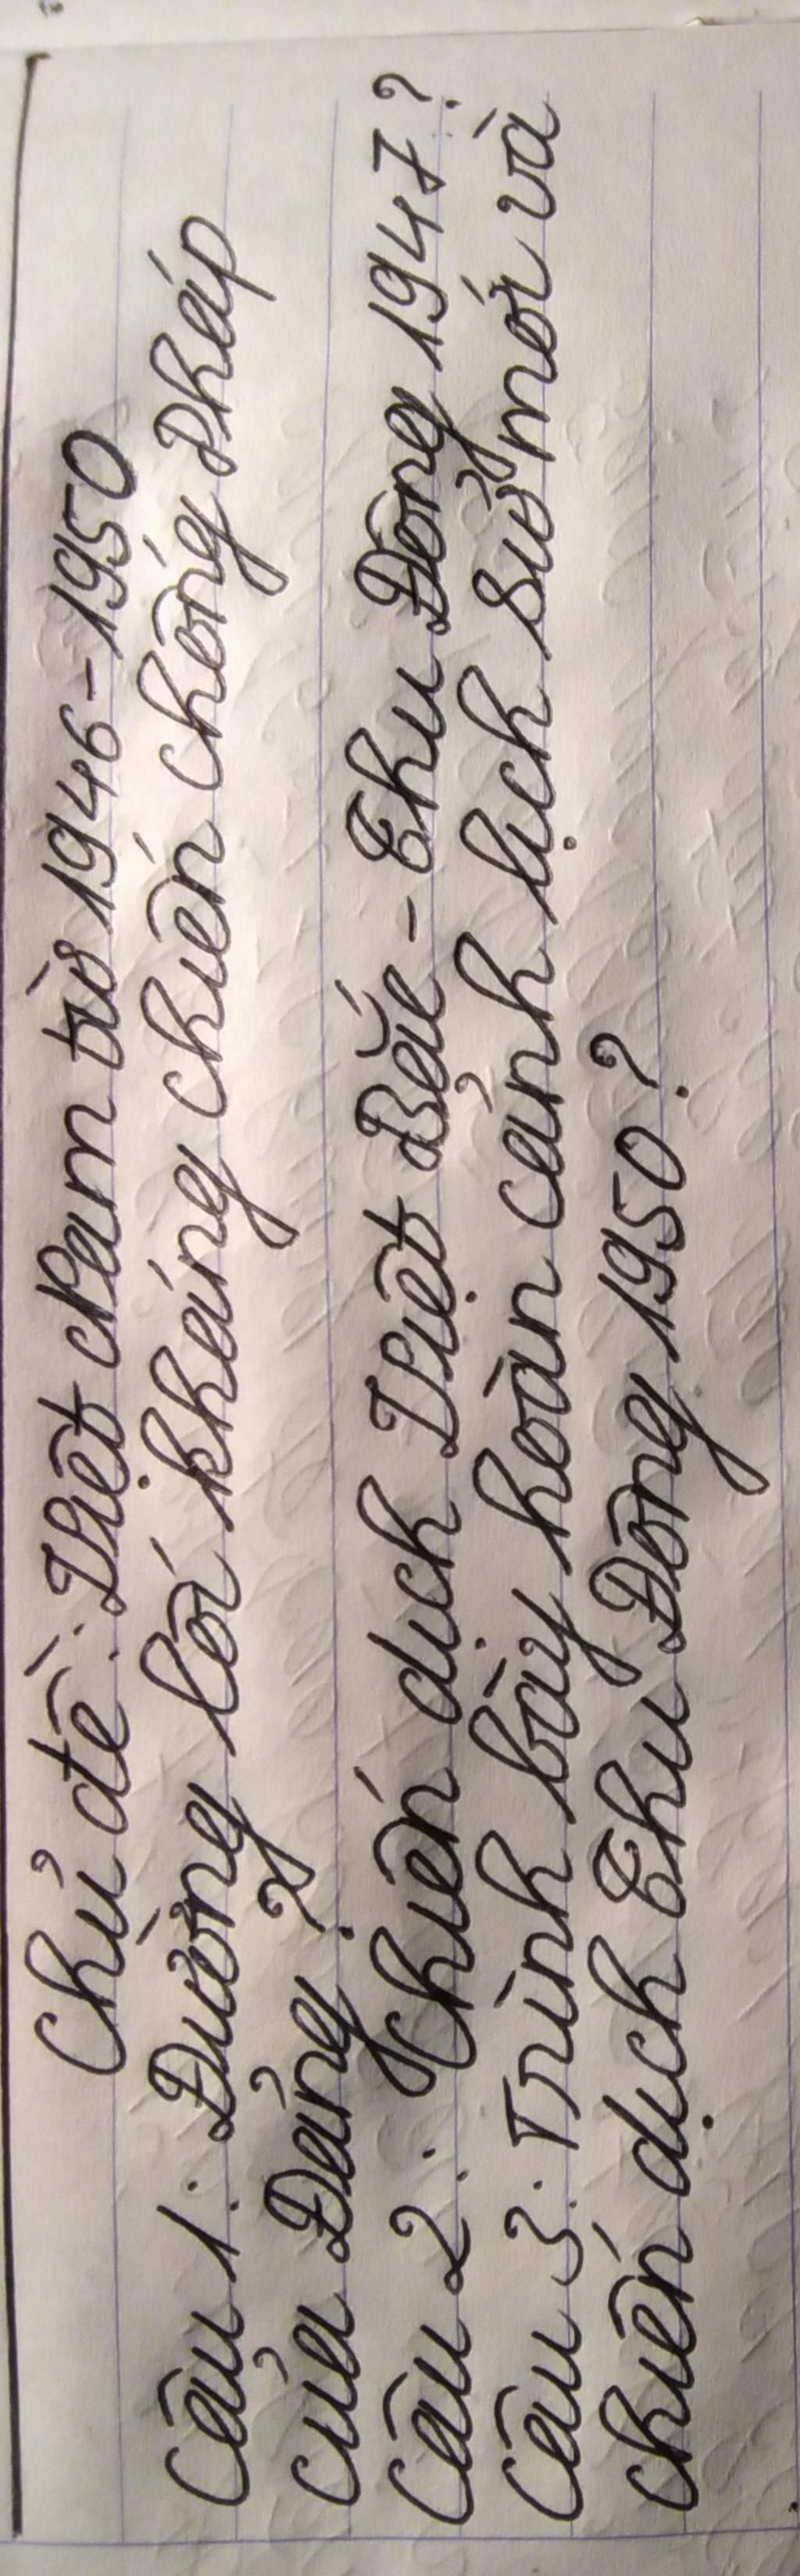 Chủ đề: Việt Nam từ 1946-1950
Câu 1: Đường lối kháng chiến chống Pháp
của Đảng?
Câu 2: Chiến dịch Việt Bắc - Thu Đông 1947?
Câu 3: Trình bày hoàn cảnh lịch sử mới và
chiến dịch Thu Đông 1950?